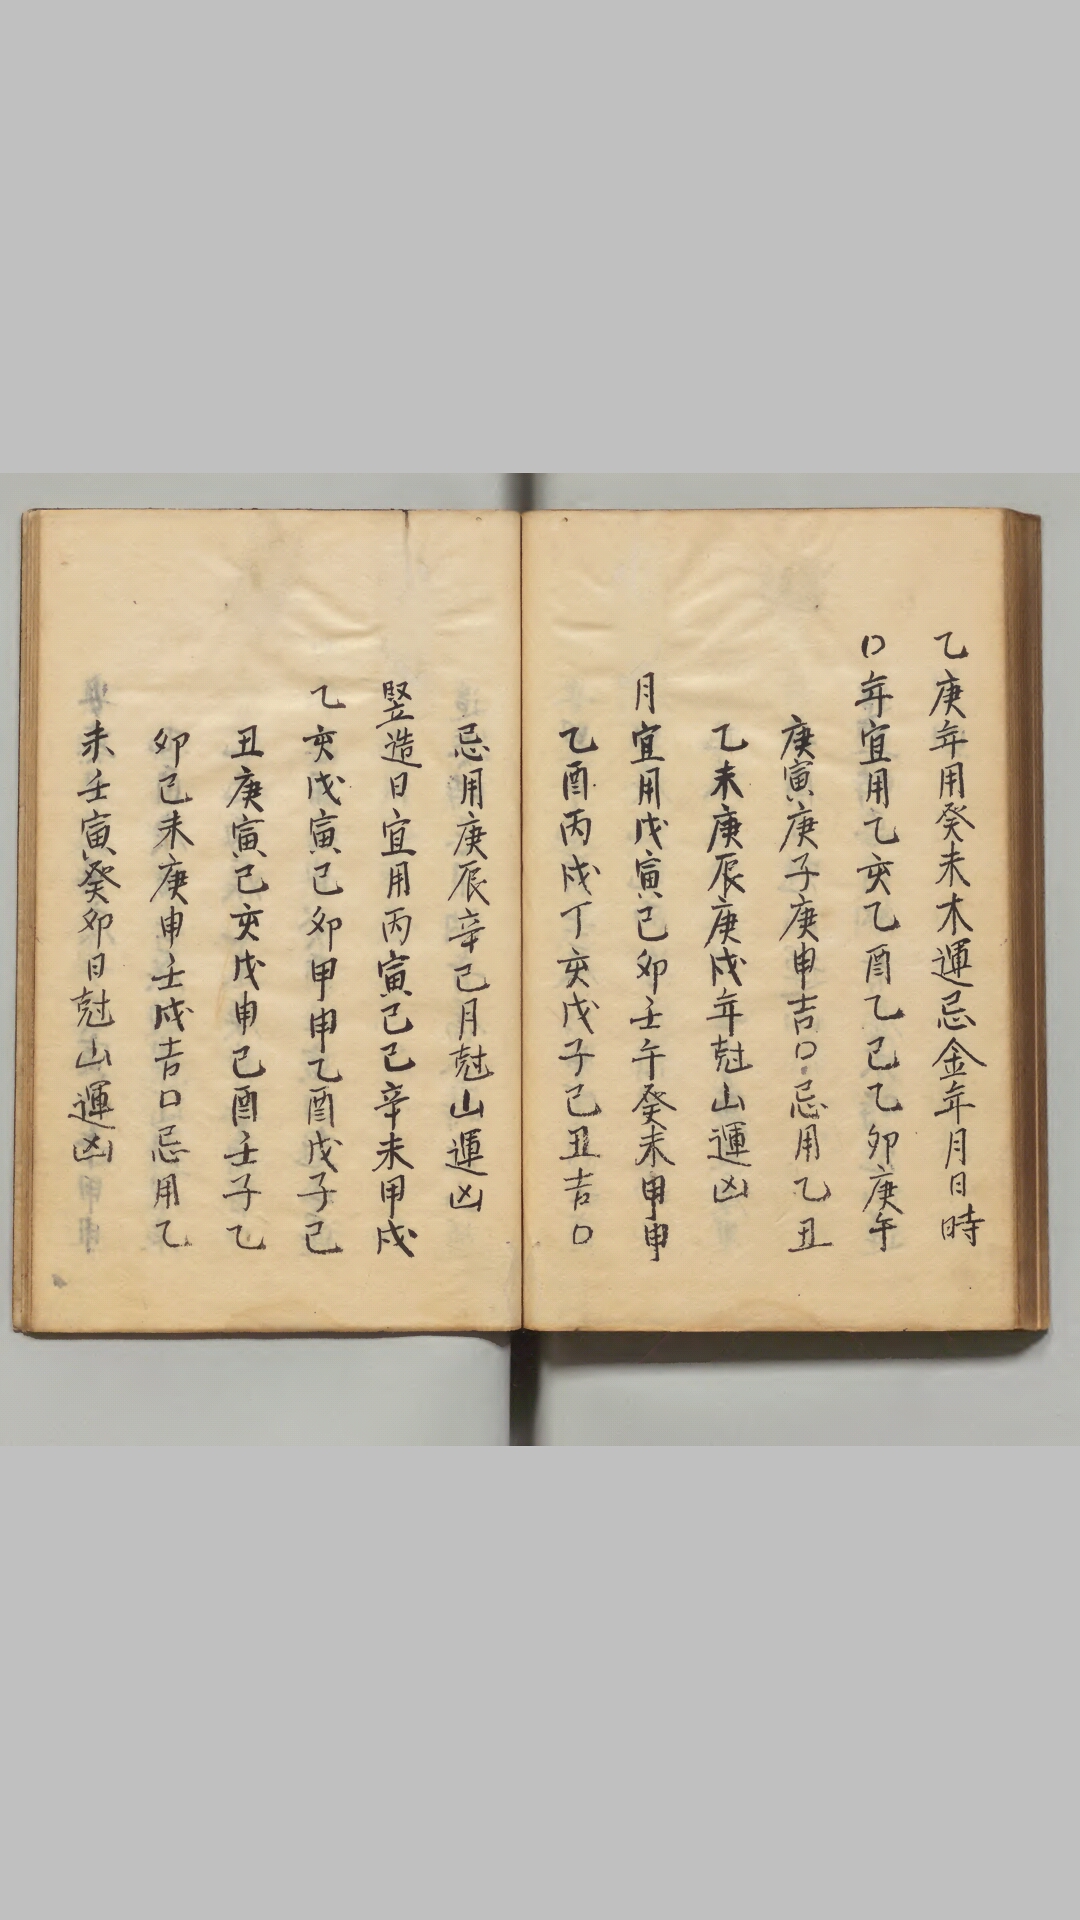 乙庚年用癸未木運忌金年月日時
口年宜用乙亥乙酉乙已乙卯庚午
庚寅庚子庚申吉口忌用乙丑
乙未庚辰庚戌年尅山運凶
月宜用戊寅己卯壬午癸未甲申
乙酉丙戌丁亥戊子己丑吉口
忌用庚辰辛已月尅山運凶
竪造日宜用丙寅己已辛未甲戌
乙亥戊寅己卯甲申乙酉戊子己
丑庚寅己亥戊申己酉壬子乙
卯己未庚申壬戌吉口忌用乙
未壬寅癸卯日尅山運凶